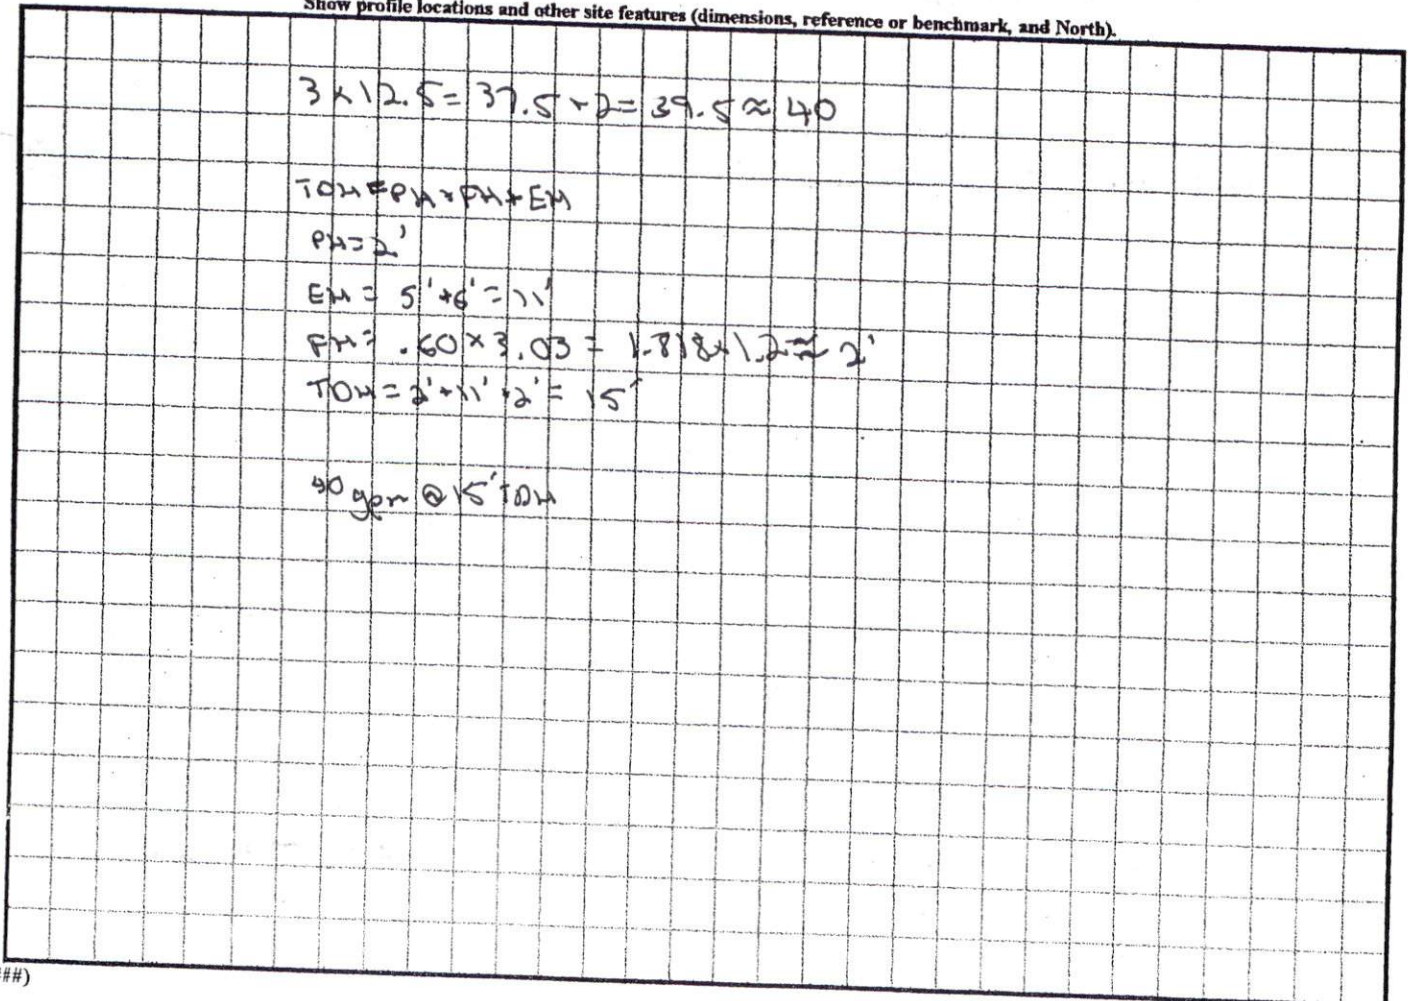 Show profile locations and other site features (dimensions, reference or benchmark, and North).
3 x 12.5 = 37.5 + 2 = 39.5 ≈ 40
TDH = PH + FH + EH
PH = 2'
EH = 5' + 6' = 11'
FH = .60 x 3.03 = 1.818 x 1.2 ≈ 2'
TDH = 2' + 11' + 2' = 15'
40 gpm @ 15' TDH
##)